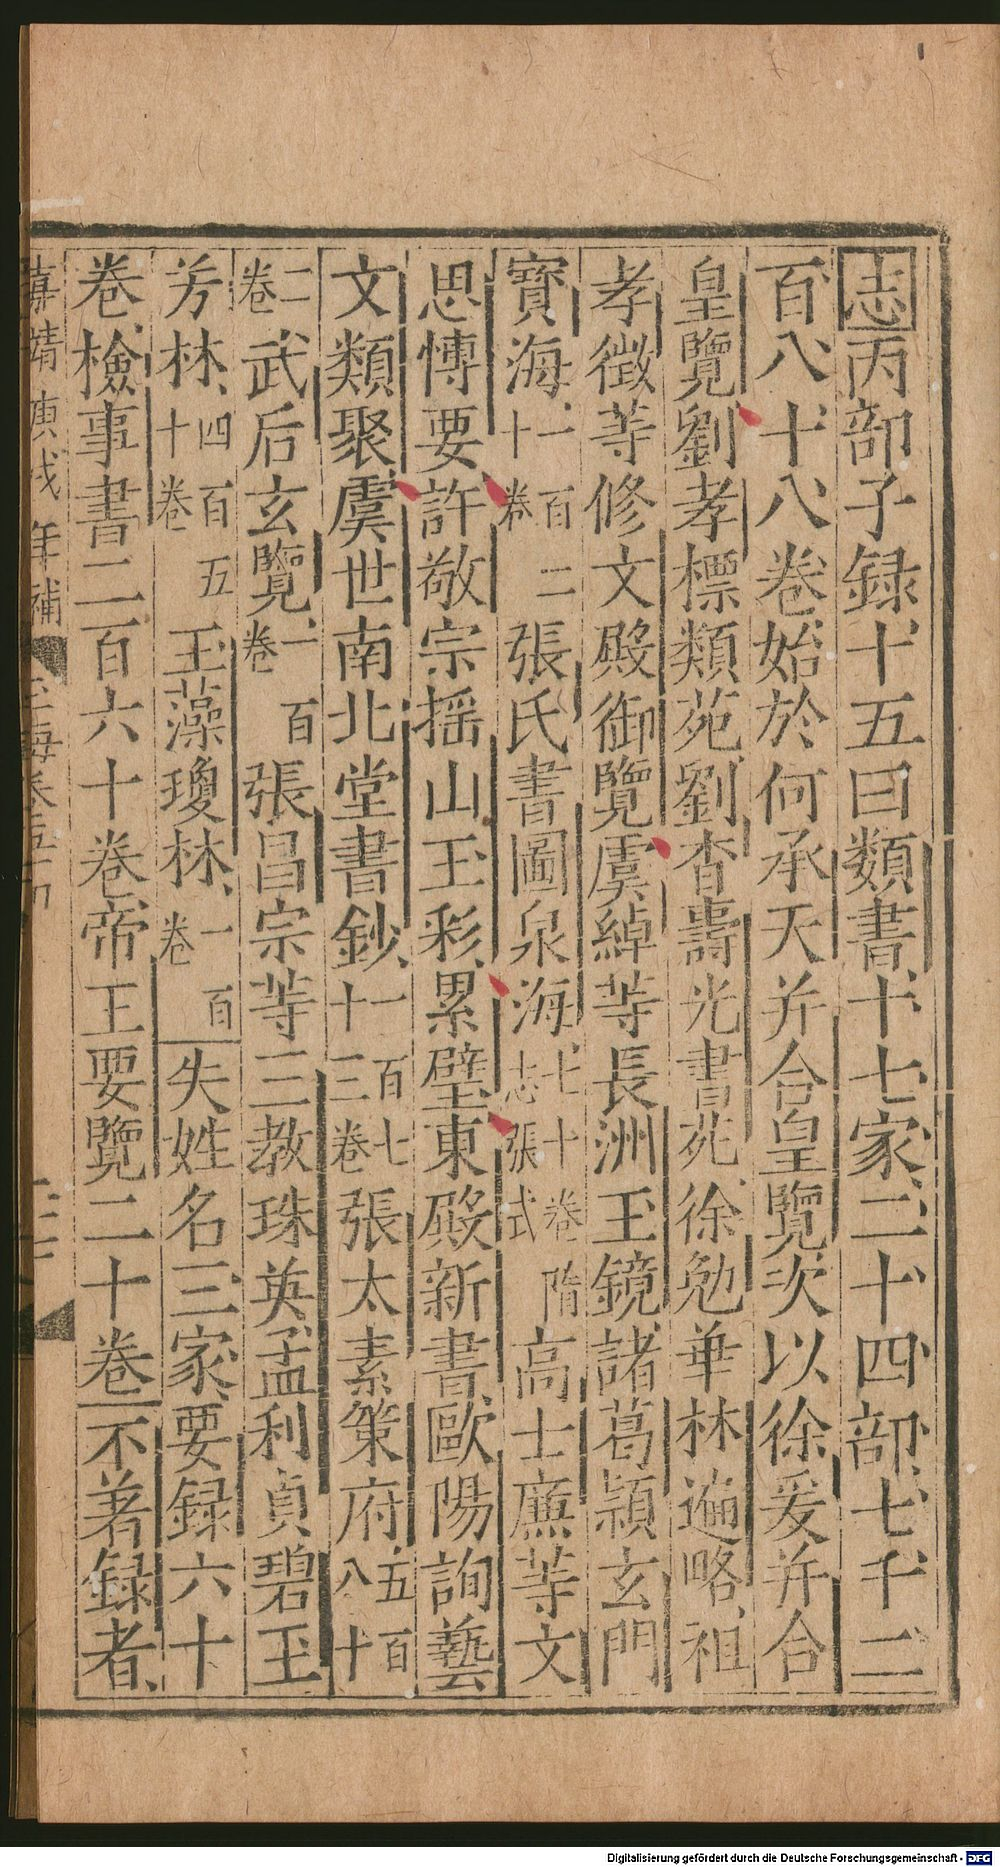 志丙部子録十五曰類書十七家二十四部七千二
百八十八卷始於何承天并合皇覽次以徐爰并合
皇覽劉孝標類苑劉杳壽光書苑徐勉華林遍略祖
孝徵等修文殿御覽虞綽等長洲玉鏡諸葛穎玄門
寶海一百二十卷張氏書圖泉海七十卷隋志張式高士廉等文
思博要許敬宗揺山玉彩累壁東殿新書歐陽詢藝
文類聚虞世南北堂書鈔一百七十三卷張太素策府五百八十
二卷武后玄覽一百卷張昌宗等三教珠英孟利貞碧玉
芳林四百五十卷玉藻瓊林一百卷失姓名三家要録六十
卷檢事書二百六十卷帝王要覽二十卷不著録者
嘉靖庚戌年補
玉海卷五十四
Digitalisierung gefördert durch die Deutsche Forschungsgemeinschaft - DFG